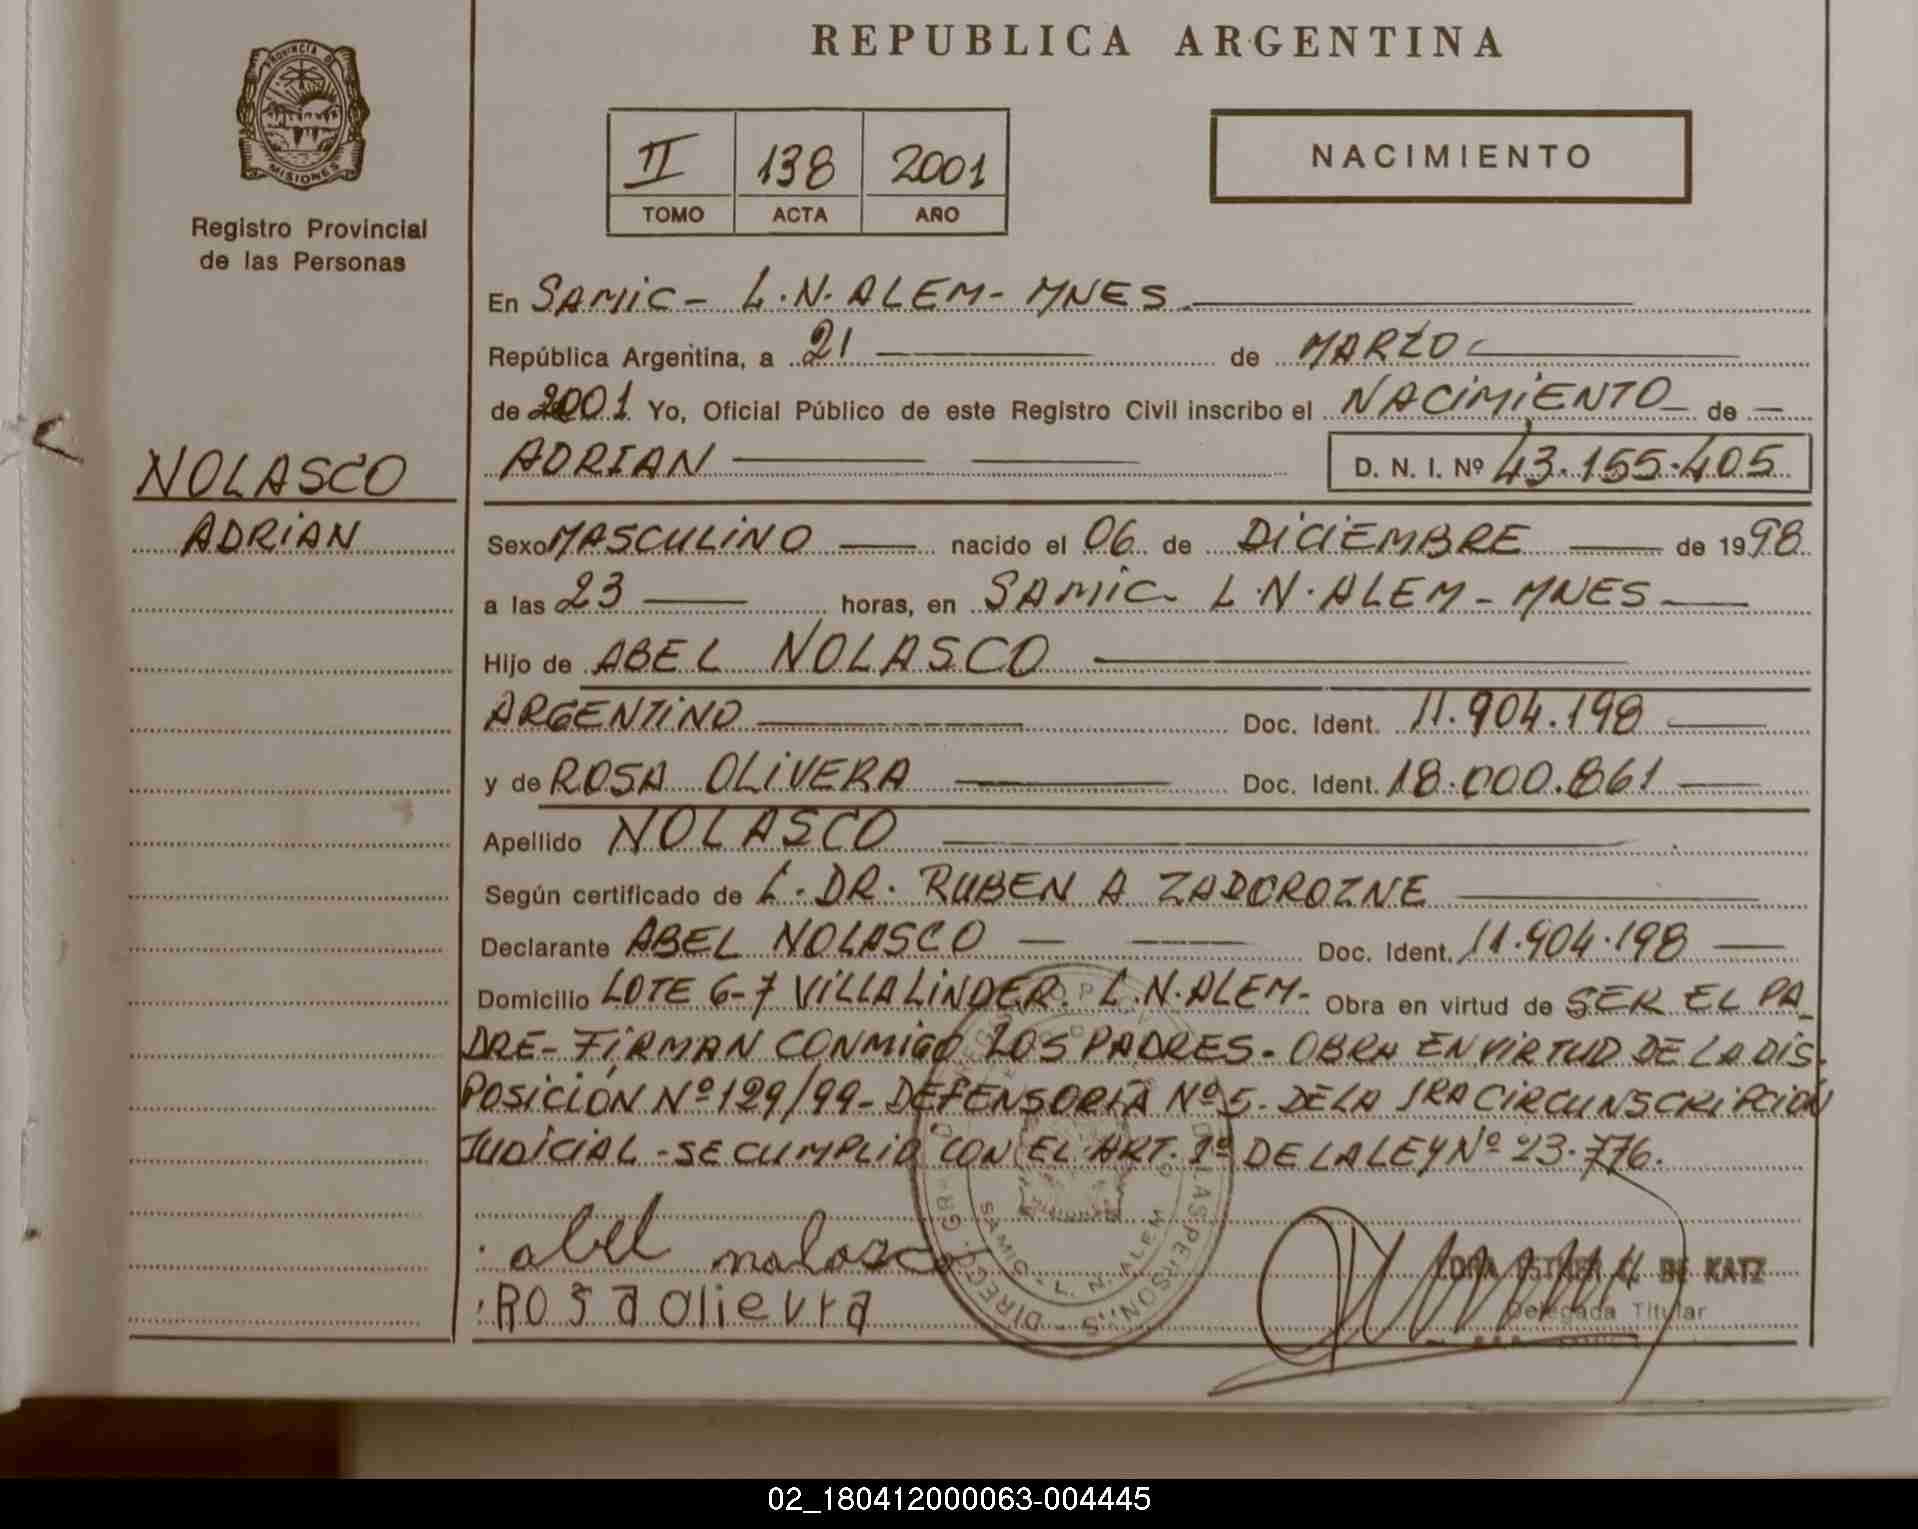 REPUBLICA ARGENTINA
PROVINCIA DE
MISIONES
Registro Provincial
de las Personas
II 138 2001
TOMO ACTA AÑO
NACIMIENTO
En SAMIC - L.N. ALEM - MNES
República Argentina, a 21 de MARZO
de 2001 Yo, Oficial Público de este Registro Civil inscribo el NACIMIENTO de
ADRIAN D. N. I. Nº 43.155.405
NOLASCO
ADRIAN
Sexo MASCULINO nacido el 06 de DICIEMBRE de 1998
a las 23 horas, en SAMIC L.N. ALEM - MNES
Hijo de ABEL NOLASCO
ARGENTINO Doc. Ident. 11.904.198
y de ROSA OLIVERA Doc. Ident. 18.000.861
Apellido NOLASCO
Según certificado de L. DR. RUBEN A ZADOROZNE
Declarante ABEL NOLASCO Doc. Ident. 11.904.198
Domicilio LOTE 6-7 VILLA LINDER. L.N. ALEM - Obra en virtud de SER EL PA_
DRE - FIRMAN CONMIGO LOS PADRES - OBRA EN VIRTUD DE LA DIS-
POSICIÓN Nº 129/99 - DEFENSORÍA Nº 5 - DE LA 1RA CIRCUNSCRIPCIÓN
JUDICIAL - SE CUMPLIO CON EL ART. 1º DE LA LEY Nº 23.776.
abel nolasco
ROSa olievra
SAMIC - L. N. ALEM
DE KATZ
Delegada Titular
02_180412000063-004445